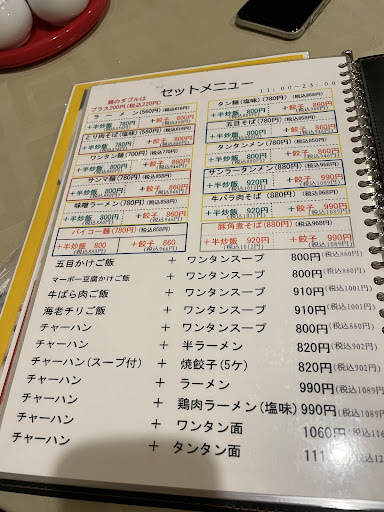 セットメニュー
11:00~23:00
麺のダブルは
プラス200円(税込220円)
ラーメン(560円)(税込616円)
+半炒飯 780円
+餃子 800円
とり肉そば(塩味)(560円)(税込616円)
+半炒飯 780円
+餃子
ワンタン麺(700円)(税込770円)
+半炒飯
+餃子
サンマ麺(780円)(税込858円)
+半炒飯
+餃子
味噌ラーメン(780円)(税込858円)
+半炒飯
+餃子
パイコー麺(780円)(税込858円)
+半炒飯 800
+餃子 860
タン麺(塩味)(780円)(税込858円)
+半炒飯 800円
+餃子 860円
五目そば(780円)(税込858円)
+半炒飯 800円
+餃子 860円
タンタンメン(780円)(税込858円)
+半炒飯 800円
+餃子 860円
サンラータンメン(880円)(税込968円)
+半炒飯 920円
+餃子 990円
牛バラ肉そば(880円)(税込968円)
+半炒飯 920円
+餃子 990円
豚角煮そば(880円)(税込968円)
+半炒飯 920円
+餃子 990円
五目かけご飯 + ワンタンスープ 800円(税込880円)
マーボー豆腐かけご飯 + ワンタンスープ 800円(税込880円)
牛ばら肉ご飯 + ワンタンスープ 910円(税込1001円)
海老チリご飯 + ワンタンスープ 910円(税込1001円)
チャーハン + ワンタンスープ 800円(税込880円)
チャーハン + 半ラーメン 820円(税込902円)
チャーハン(スープ付) + 焼餃子(5ケ) 820円(税込902円)
チャーハン + ラーメン 990円(税込1089円)
チャーハン + 鶏肉ラーメン(塩味) 990円(税込1089円)
チャーハン + ワンタン面 1060円(税込116
チャーハン + タンタン面 111